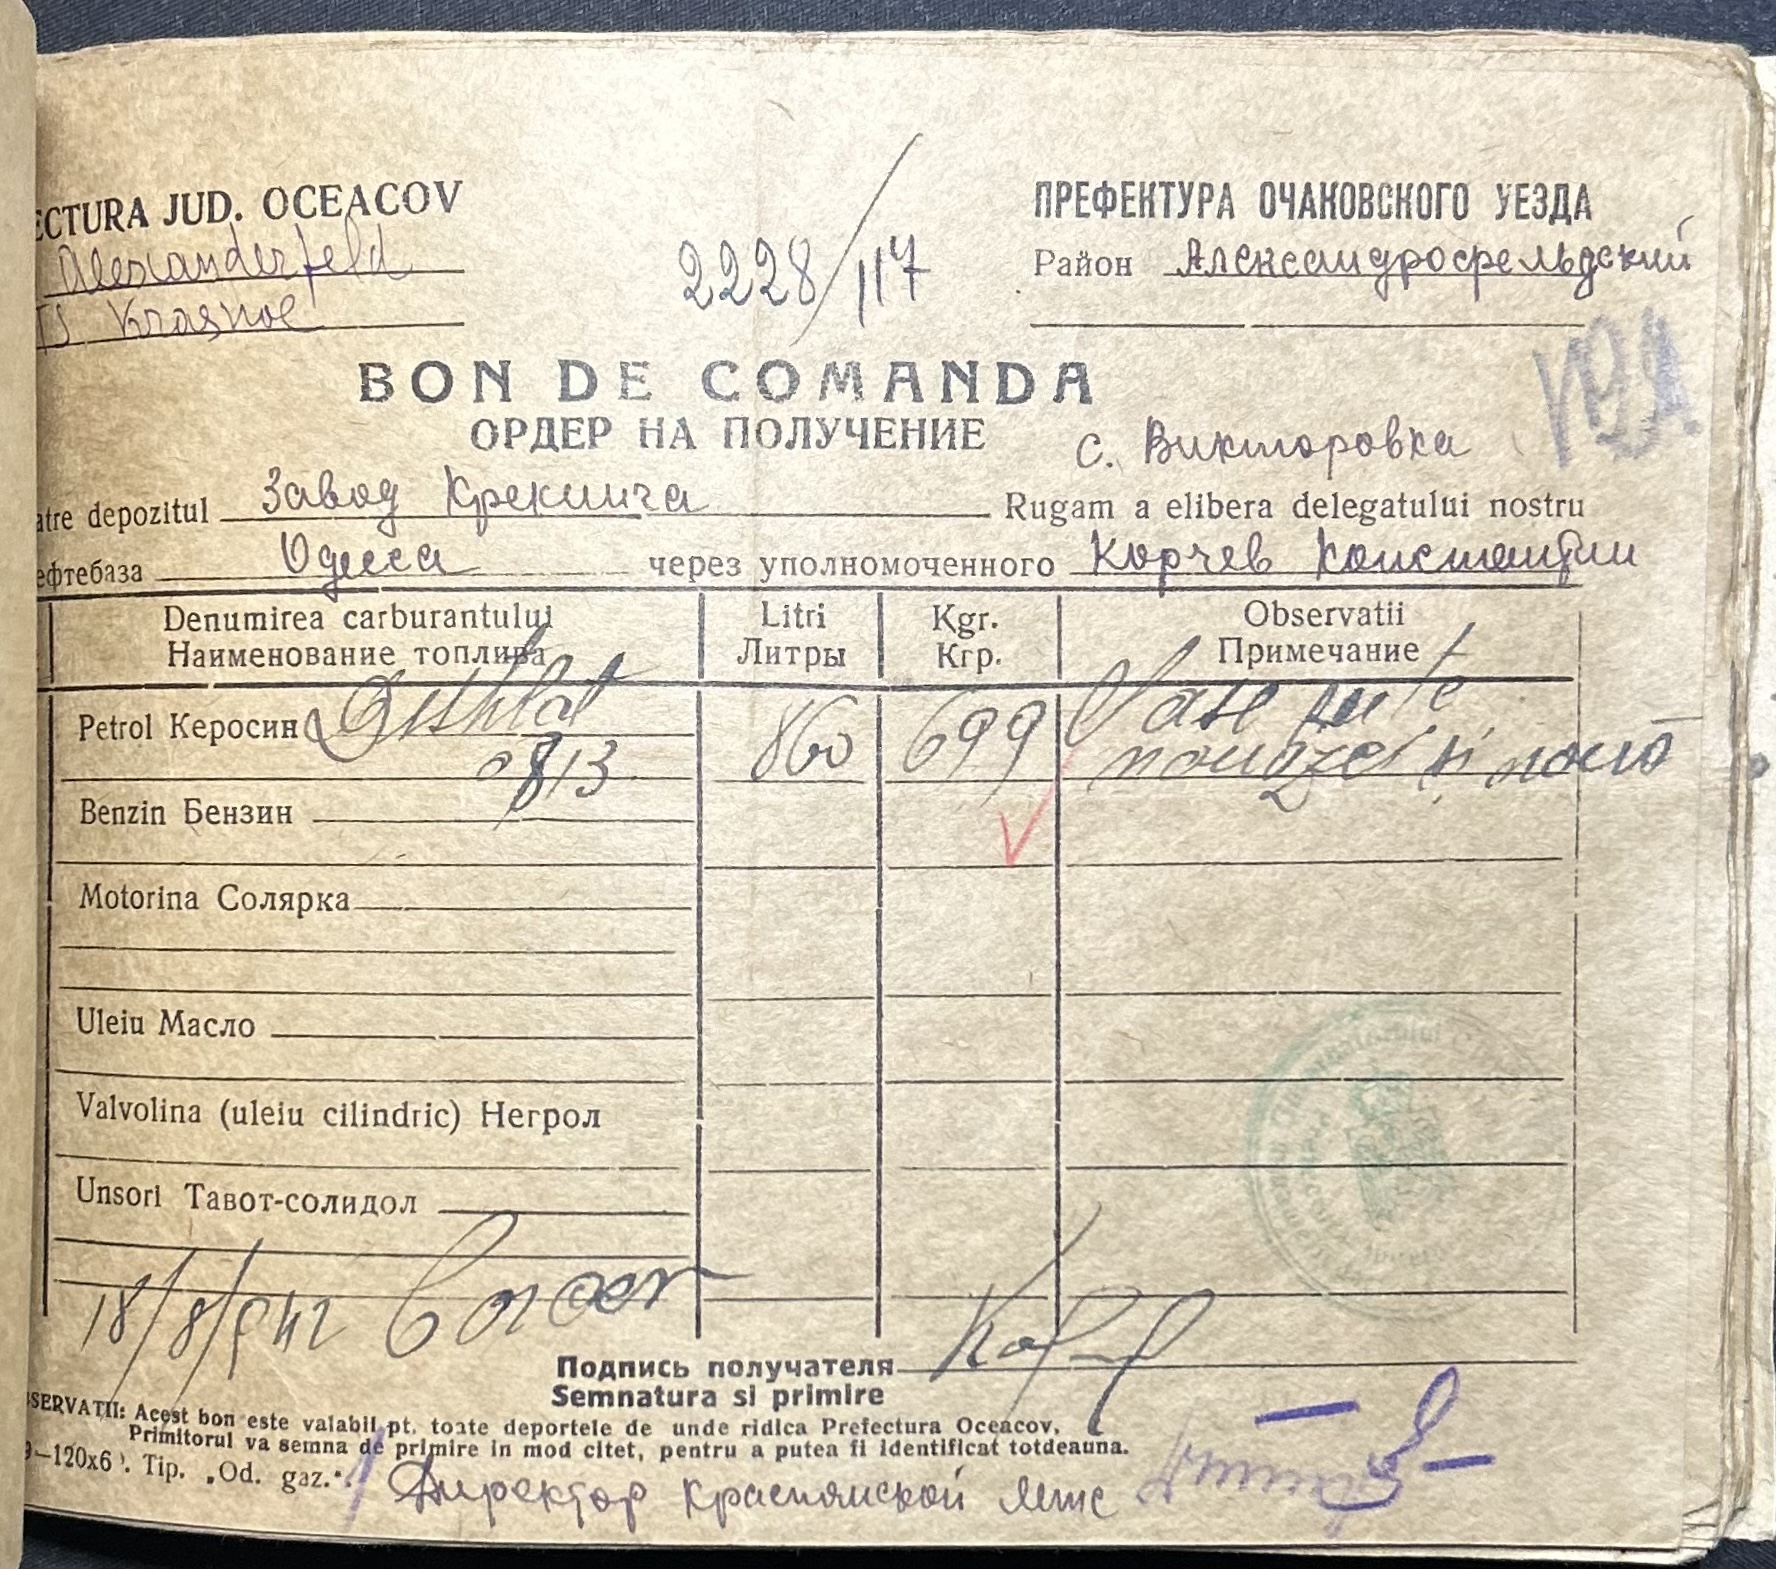 ECTURA JUD. OCEACOV
Alexanderfeld
TS Krasnoe
2228/117
ПРЕФЕКТУРА ОЧАКОВСКОГО УЕЗДА
Район Александрофельдский
BON DE COMANDA
ОРДЕР НА ПОЛУЧЕНИЕ
с. Викторовка
atre depozitul Завод Крекинга Rugam a elibera delegatului nostru
ефтебаза Одесса через уполномоченного Корчев Константин
Denumirea carburantului Litri Kgr. Observatii
Наименование топлива Литры Кгр. Примечание
Petrol Керосин 860 699 Sase sute
0813 nouăzeci si nouă
Benzin Бензин
Motorina Солярка
Uleiu Масло
Valvolina (uleiu cilindric) Негрол
Unsori Тавот-солидол
18/8/942
Подпись получателя
Semnatura si primire
SERVAȚII: Acest bon este valabil pt. toate deportele de unde ridica Prefectura Oceacov,
Primitorul va semna de primire in mod citet, pentru a putea fi identificat totdeauna.
9—120x6 . Tip. „Od. gaz.".
Директор Краснянской мтс